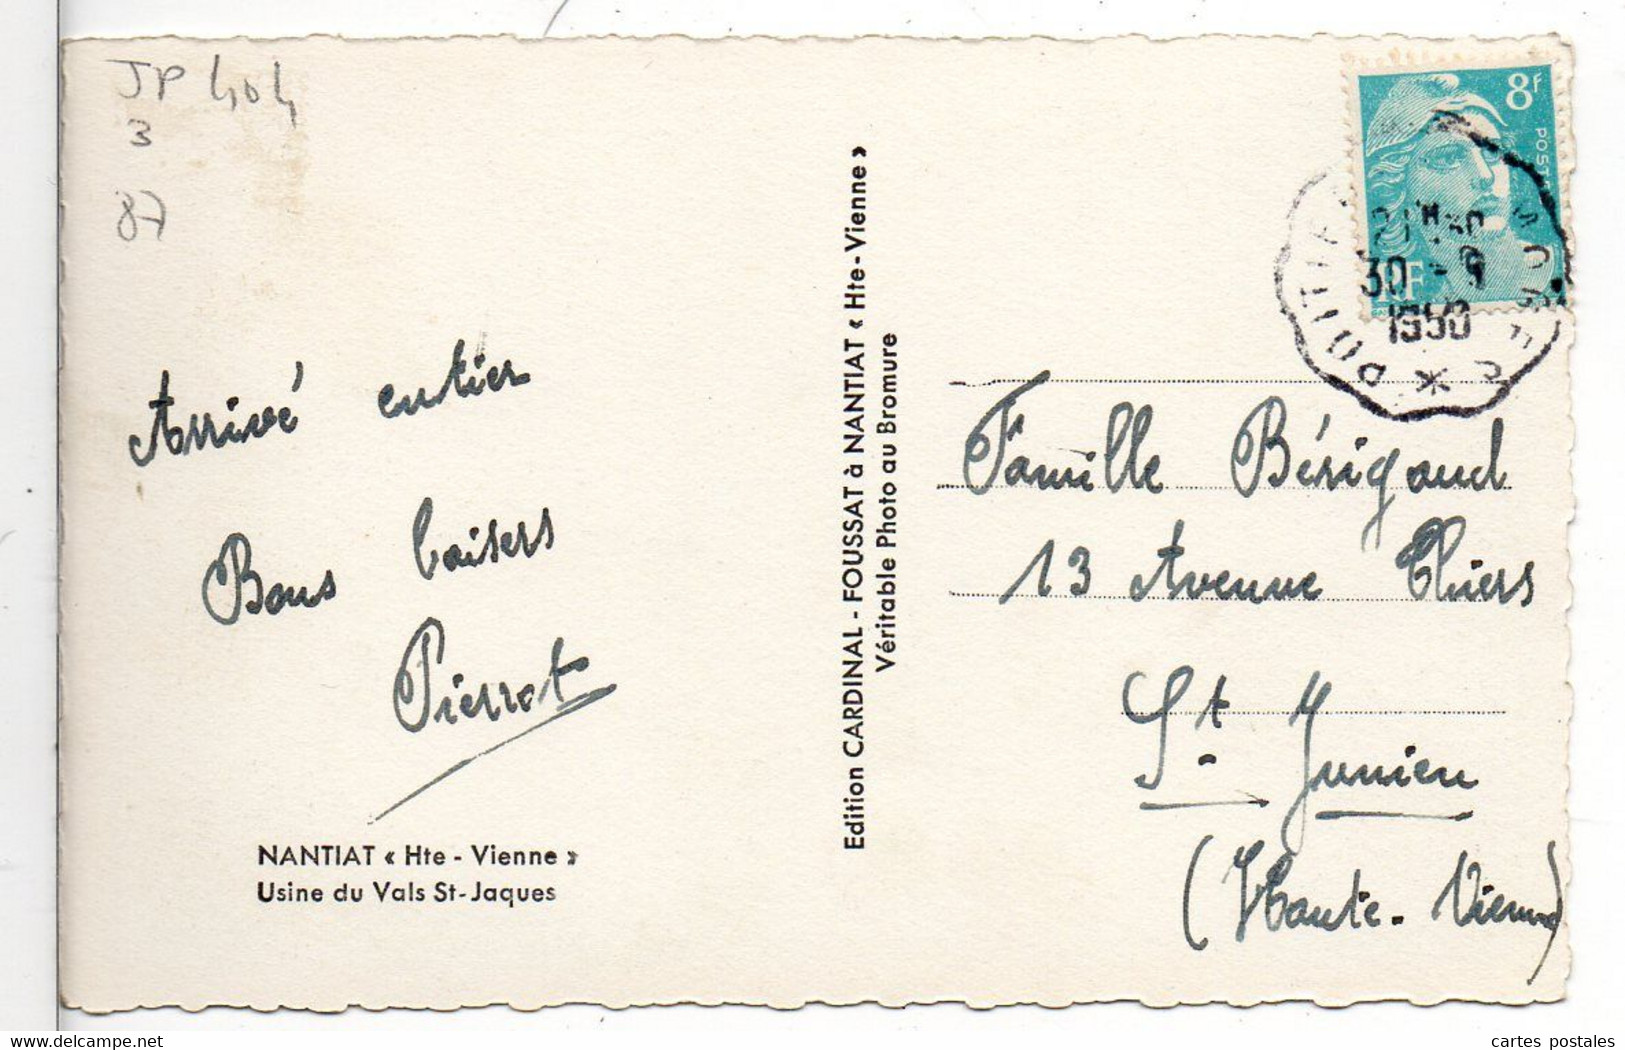 JP 404
3
87
Arrivé entier
Bons baisers
Pierrot
NANTIAT « Hte - Vienne »
Usine du Vals St-Jaques
Edition CARDINAL - FOUSSAT à NANTIAT « Hte-Vienne »
Véritable Photo au Bromure
8F
POST
RF
30 - 9
1950
Famille Bérigaud
13 Avenue Thiers
St Junien
(Haute-Vienne)
cartes postales .com